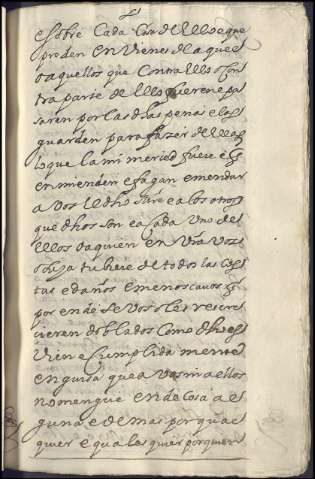 e sobre cada cosa dello e que
prenden en vienes de aquel
o aquellos que contra ello o con
tra parte dello fueren e pa
saren por las dhas penas e las
guarden para fazer dellas
lo que la mi merced fuere e q
enmienden e fagan emendar
a vos el dho e a los otros
que dhos son e a cada uno de
llos o a quien en vra voz
o suya tubiere de todas las cos
tas e daños e menoscavos q
por ende se vos o les recre
cieren doblados como dho es
vien e cumplida mente
en guisa que a vos ni a ellos
no mengue ende cosa al
guna e demas por qual
quier e quales quier por quien